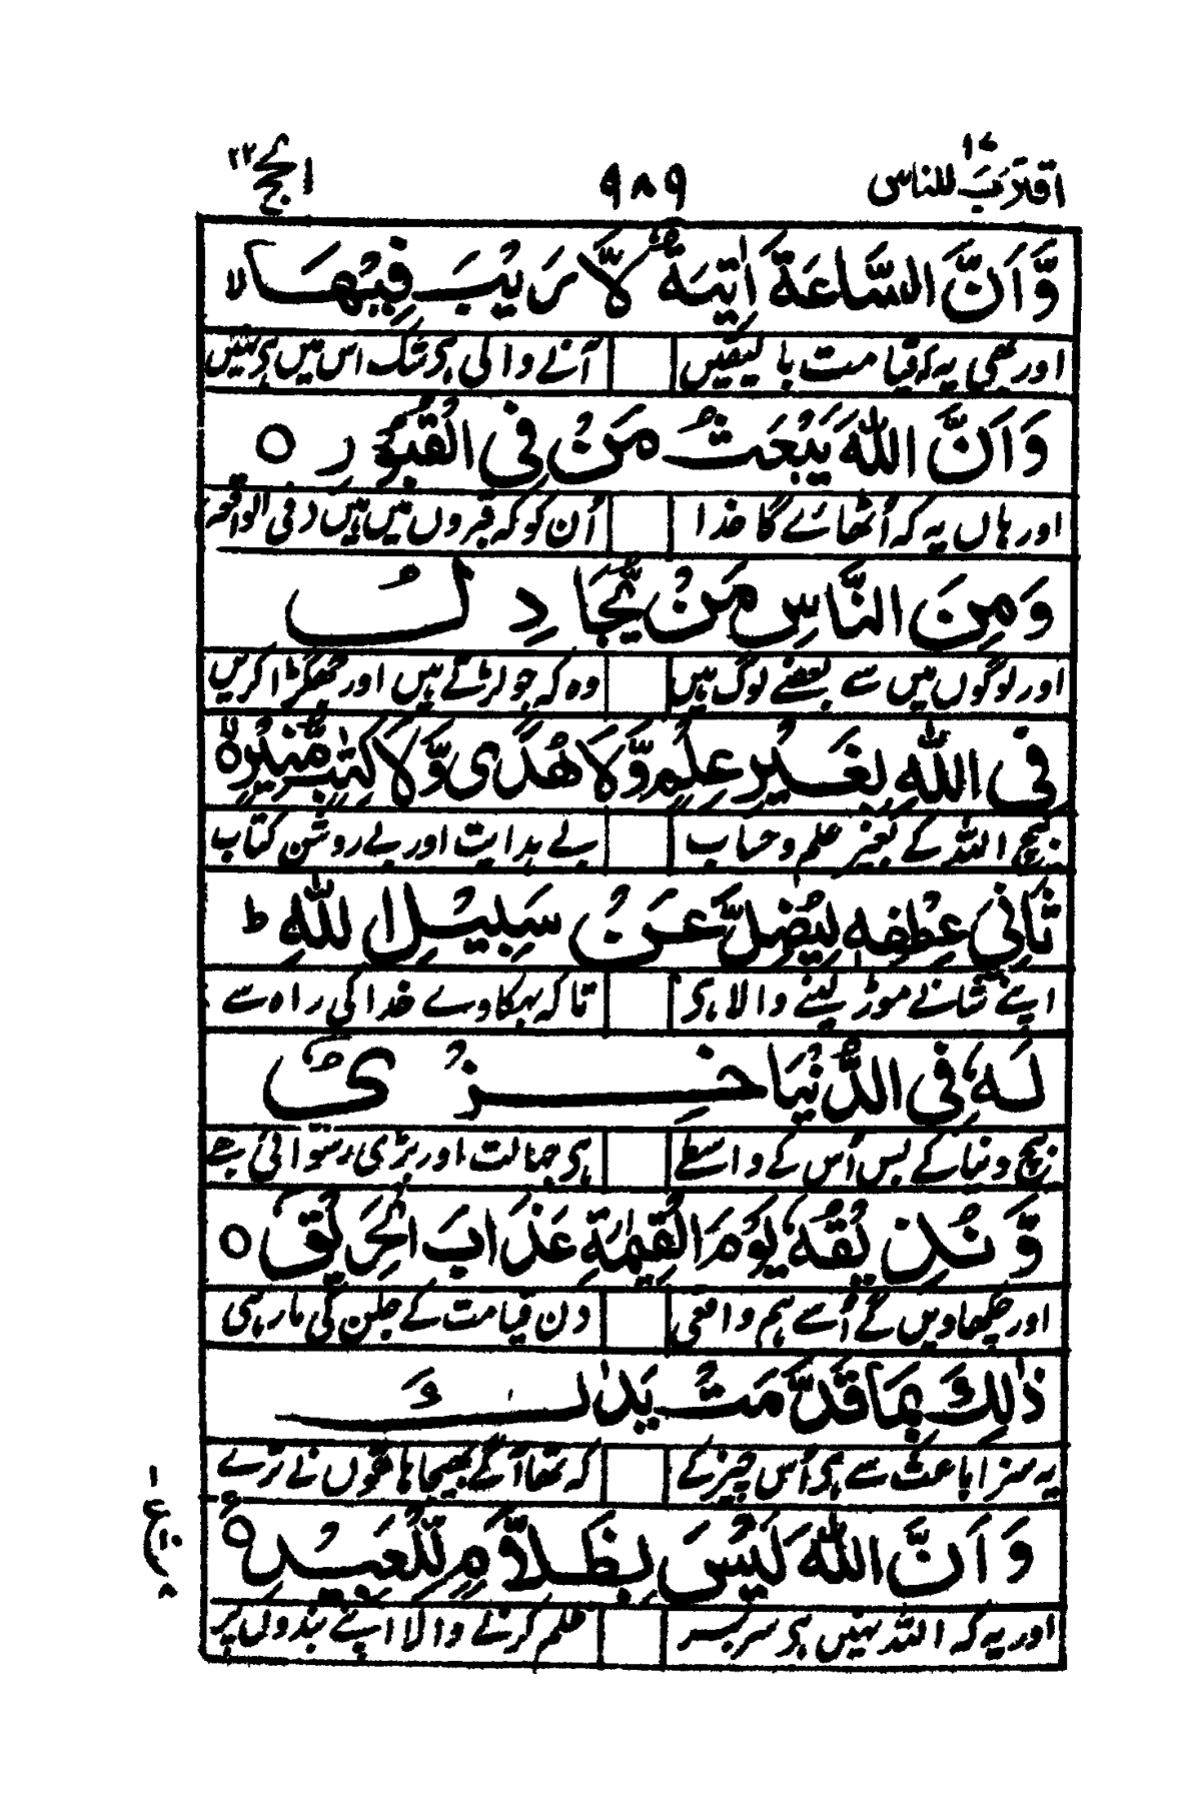 اقترب للناس ۱۷ ۹۸۹ الحج ۲۲
وَّاَنَّ السَّاعَةَ اٰتِيَةٌ لَّا رَيْبَ فِيْهَا ۙ
اور بھی یہ کہ قیامت بالیقیں آنے والی ہی شک اس میں ہی نہیں
وَاَنَّ اللّٰهَ يَبْعَثُ مَنْ فِي الْقُبُوْرِ ○
اور ہاں یہ کہ اُٹھائے گا خدا اُن کو کہ قبروں میں ہیں فی الواقعہ
وَمِنَ النَّاسِ مَنْ يُّجَادِلُ
اور لوگوں میں سے بعضے لوگ ہیں وہ کہ جو لڑتے ہیں اور جھگڑا کریں
فِي اللّٰهِ بِغَيْرِ عِلْمٍ وَّلَا هُدًى وَّلَا كِتٰبٍ مُّنِيْرٍ ۙ○
بیچ اللہ کے بغیر علم و حساب بے ہدایت اور بے روشن کتاب
ثَانِيَ عِطْفِهٖ لِيُضِلَّ عَنْ سَبِيْلِ اللّٰهِ ؕ
اپنے شانے موڑ لینے والا ہی تا کہ بہکاوے خدا کی راہ سے
لَهٗ فِي الدُّنْيَا خِزْيٌ
بیچ دنیا کے بس اُس کے واسطے ہی جہالت اور بڑی رسوائی ہے
وَّنُذِيْقُهٗ يَوْمَ الْقِيٰمَةِ عَذَابَ الْحَرِيْقِ ○
اور چکھاویں گے اُسے ہم واقعی دن قیامت کے جلن کی مار ہی
ذٰلِكَ بِمَا قَدَّمَتْ يَدٰكَ
یہ سزا باعث سے ہی اُس چیز کے کہ تھا آگے بھیجا ہاتھوں نے ترے
وَاَنَّ اللّٰهَ لَيْسَ بِظَلَّامٍ لِّلْعَبِيْدِ ○
اور یہ کہ اللہ نہیں ہی سر بسر ظلم کرنے والا اپنے بندوں پر
۱
ع
۱۰
۸